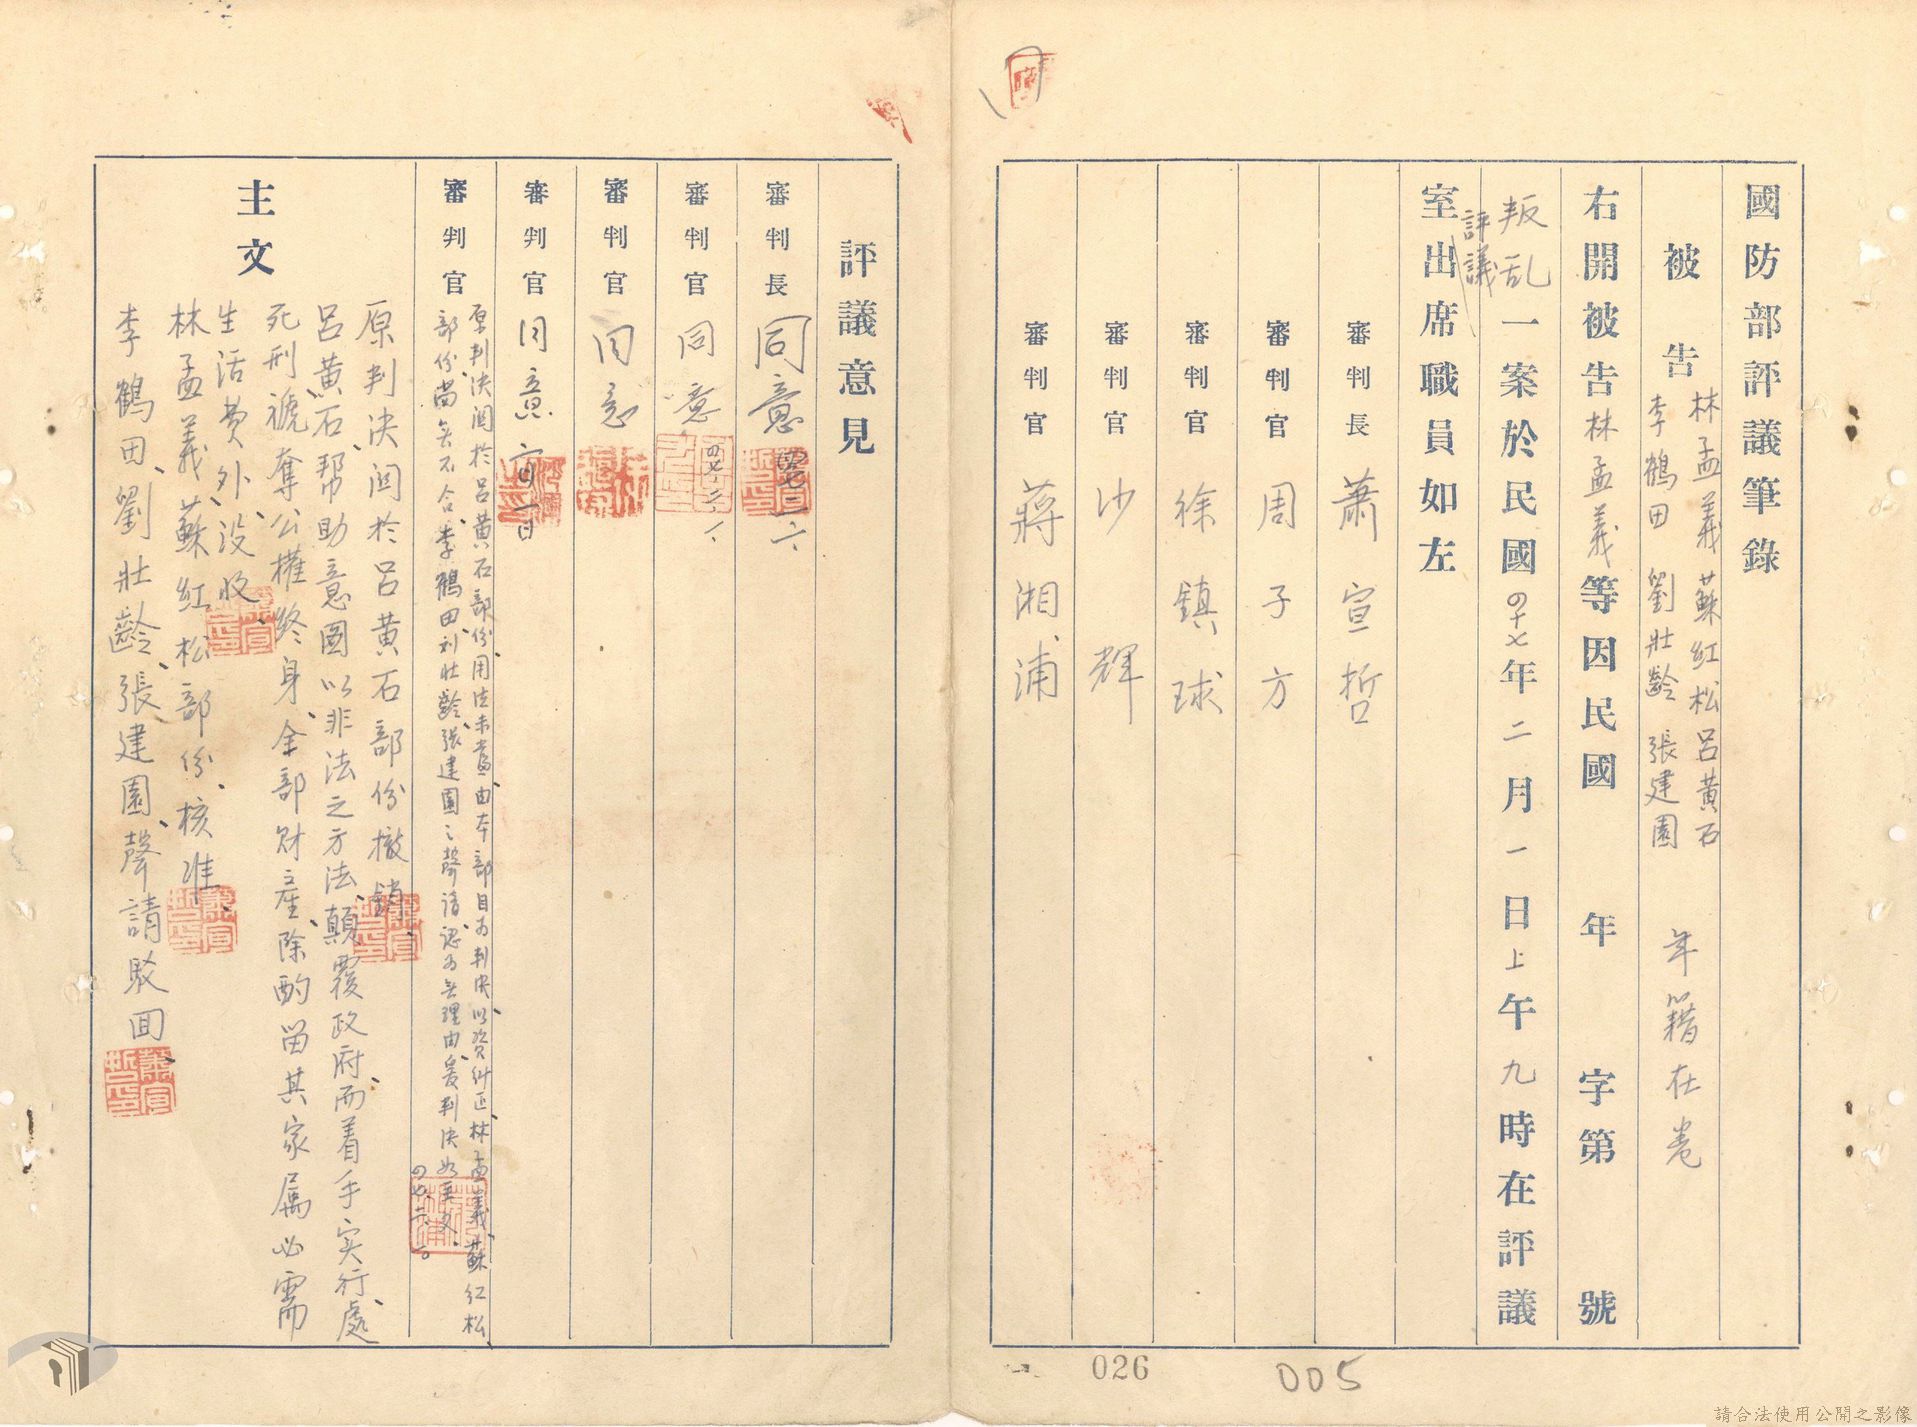 國防部評議筆錄
被告
林孟義 蘇紅松 呂黃石
李鶴田 劉壯齡 張建園
年籍在卷
右開被告林孟義等因民國 年 字第 號
叛乱一案於民國四十七年二月一日上午九時在評議
評議
室出席職員如左
審判長 蕭宣哲
審判官 周子方
審判官 徐鎮球
審判官 沙輝
審判官 蔣湘浦
評議意見
審判長 同意 四七二六、
審判官 同意 四七、二、一、
審判官 同意
審判官 同意 一日
審判官
原判決関於呂黃石部份用法未當、由本部自為判決、以資糾正、林孟義、蘇红松
部份尚無不合、李鶴田刘壯齡、張建園之聲請、認為無理由、爰判決如主文、
四七、二、一。
主文
原判決関於呂黃石部份撤銷、
呂黃石、帮助意圖以非法之方法、顛覆政府、而着手实行、處
死刑、褫奪公權終身、全部財產、除酌留其家属必需
生活費外、没收、
林孟義、蘇紅松部份、核准、
李鶴田、劉壯齡、張建園、聲請駁回、
026
005
請合法使用公開之影像